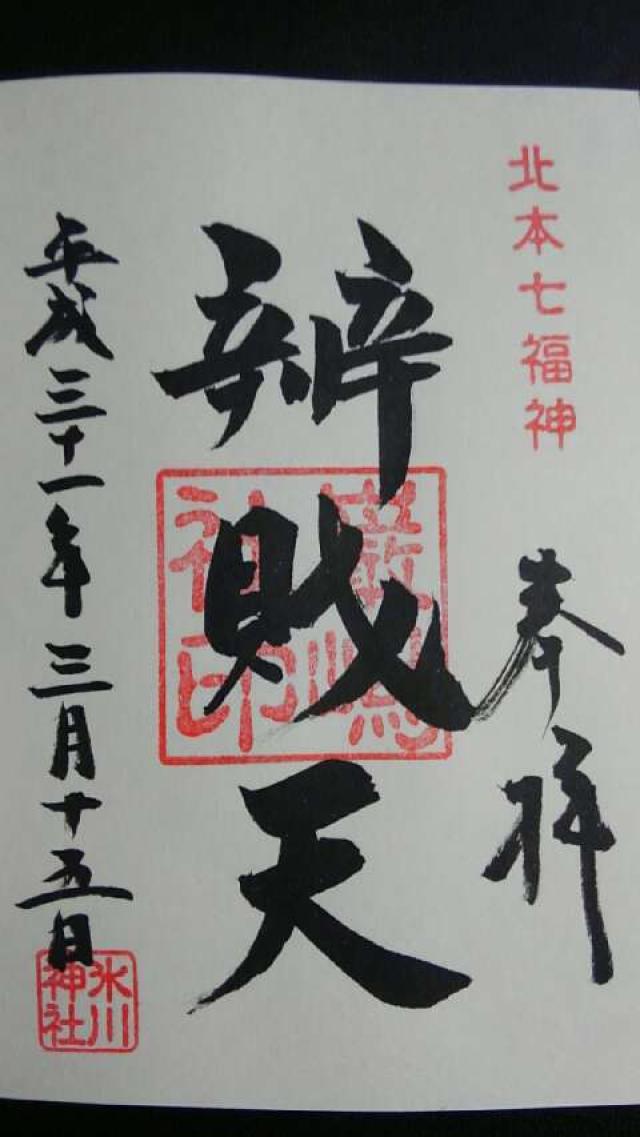 北本七福神
奉拝
辨財天
嚴嶋
神印
平成三十一年三月十五日
氷川
神社